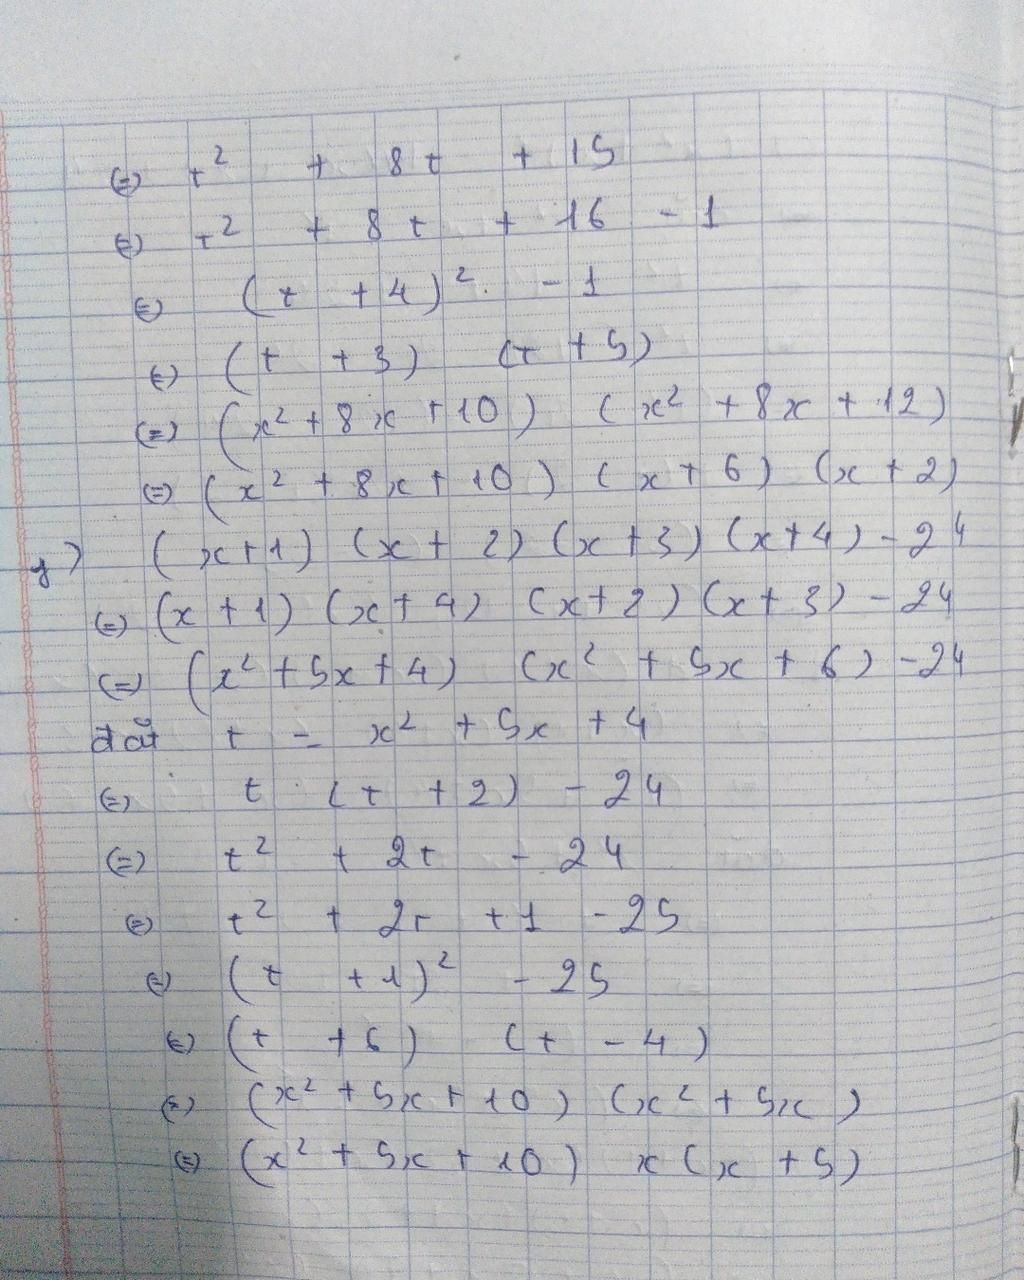 (=) t² + 8t + 15
(=) t² + 8t + 16 - 1
(=) (t + 4)² - 1
(=) (t + 3) (t + 5)
(=) (x² + 8x + 10) (x² + 8x + 12)
(=) (x² + 8x + 10) (x + 6) (x + 2)
y) (x+1) (x+2) (x+3) (x+4) - 24
(=) (x + 1) (x + 4) (x + 2) (x + 3) - 24
(=) (x² + 5x + 4) (x² + 5x + 6) - 24
đặt t = x² + 5x + 4
(=) t (t + 2) - 24
(=) t² + 2t - 24
(=) t² + 2t + 1 - 25
(=) (t + 1)² - 25
(=) (t + 6) (t - 4)
(=) (x² + 5x + 10) (x² + 5x)
(=) (x² + 5x + 10) x (x + 5)